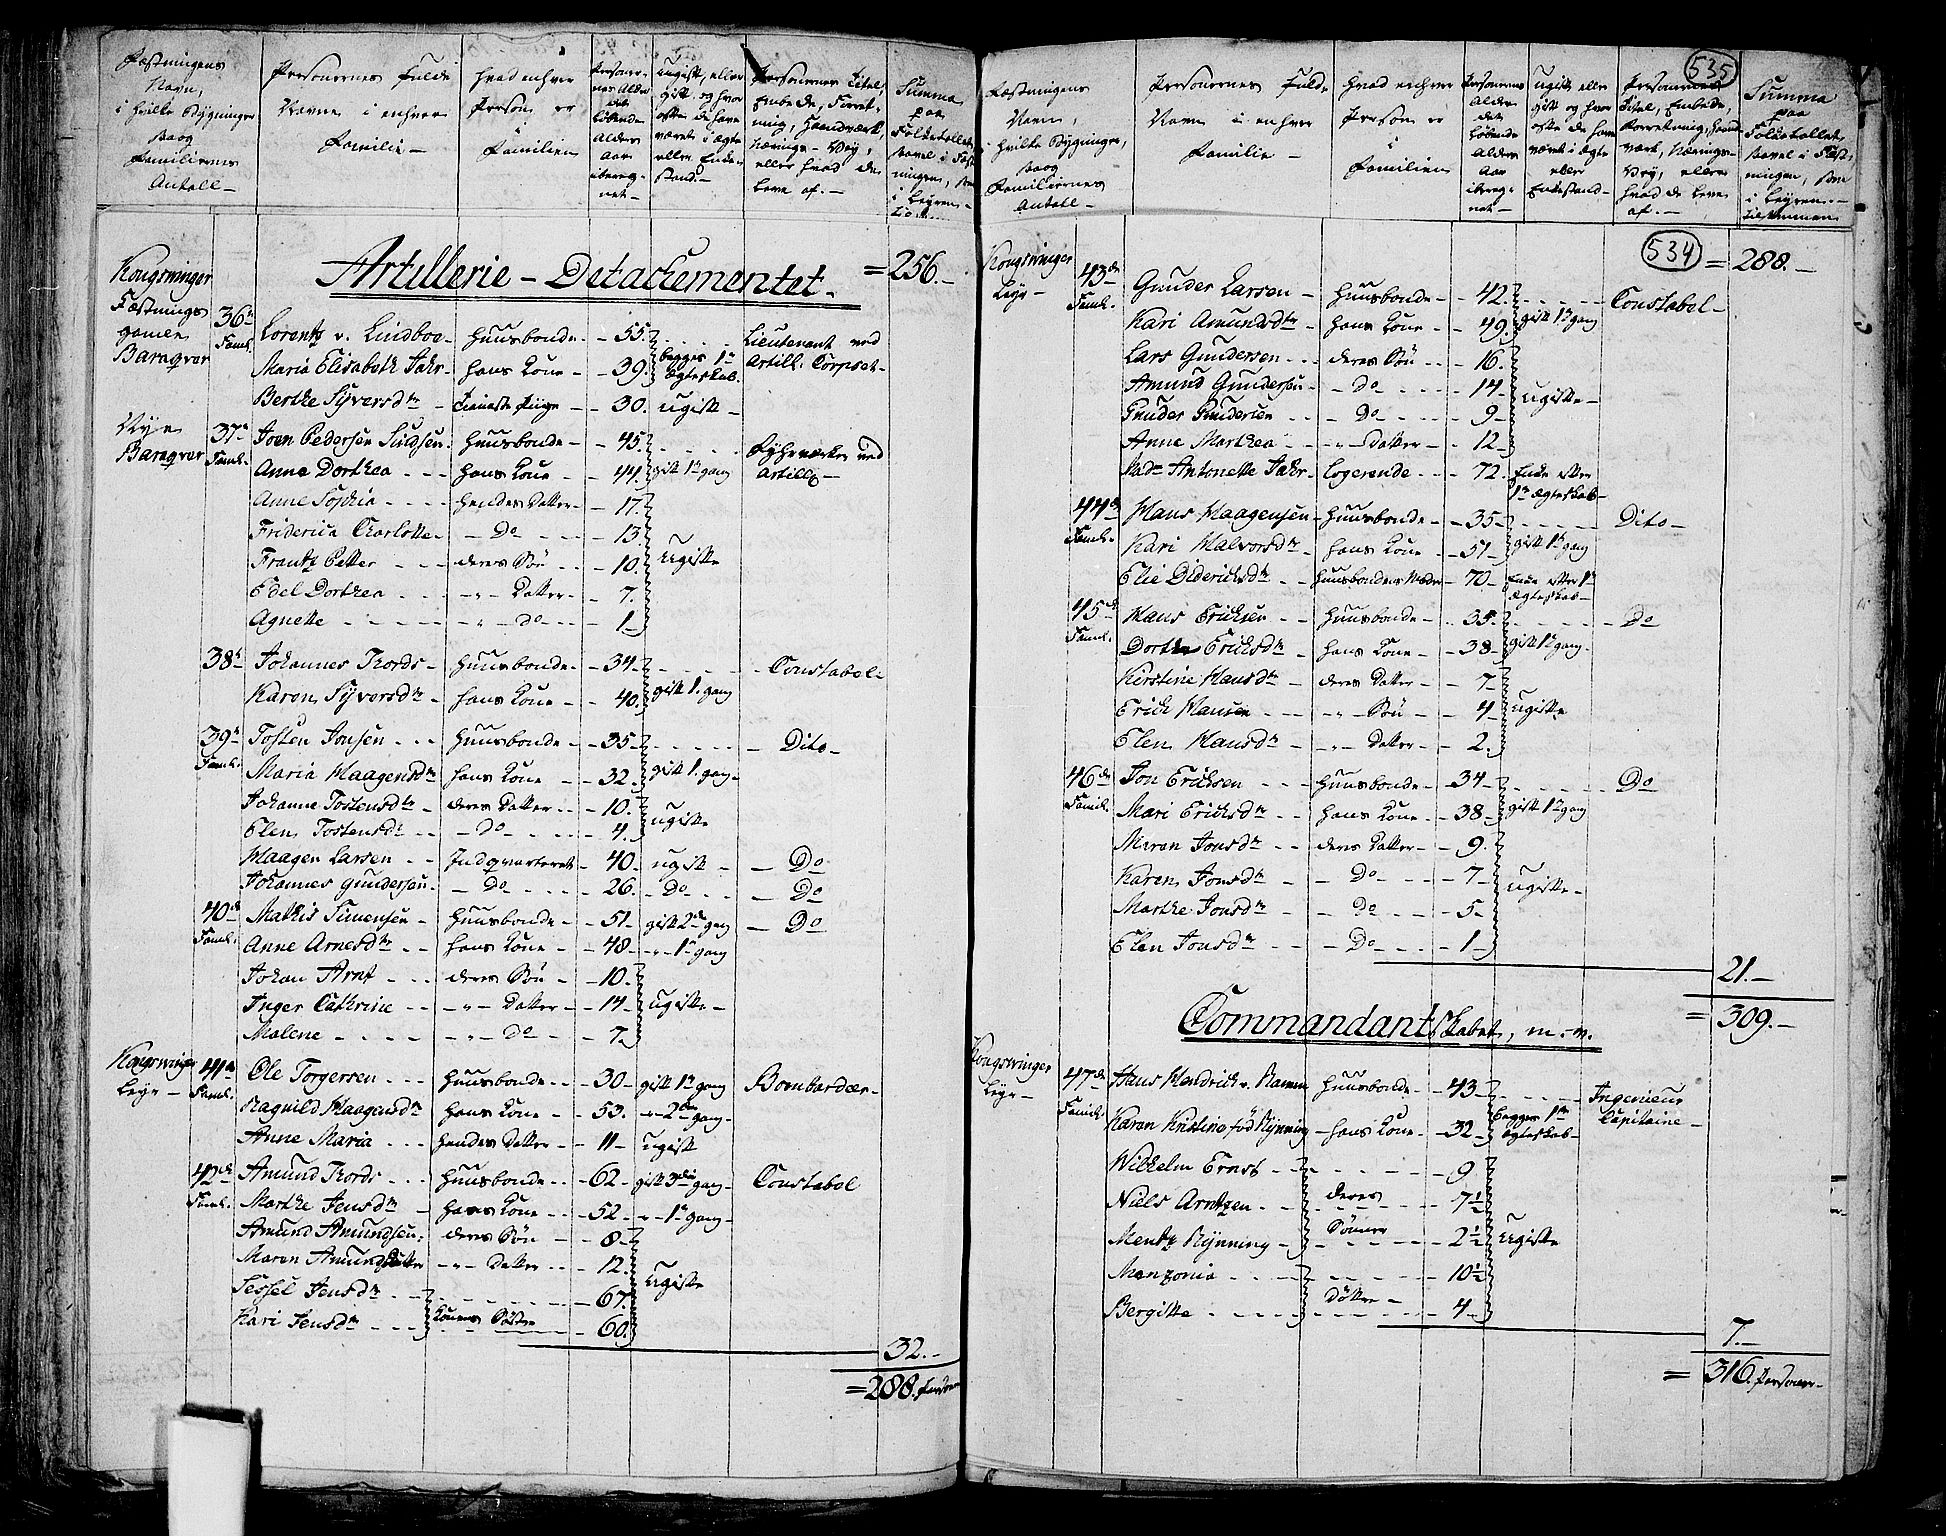 Fæstningens Navn, i hvilke Bygninger, saog Familiernes Antall –
Personernes fulde Navne i enhver Familie –
hvad enhver Person er i Familien
Personernes Alder det løbende Alders Aar iberegnet –
ugift, eller gift, og hvor ofte de have været i Ægte eller Enkestand. –
Personernes Titel, Embede, Forretning, Haandværk, Nærings-Vey, eller hvad de leve af. –
Summa paa Folketallet
Artillerie – Detachementet –
= 256. –
Kongsvinger Fæstnings gamle Baraqver
36te Famil. Lorentz v. Lindboe – Huusbonde – 55. Lieutenant ved
Maria Elisabeth Fahr – hans Kone – 39. begges 1te Ægteskab. Artill: Corpset –
Berthe Syversdtr – Tieneste Piige – 30. ugift –
Nye Baraqver
37te Famil. Joen Pedersen – Huusbonde – 45. Fyhrværker ved
Anne Dorthea – hans Kone – 44. gift 1te gang Artill –
Anne Sophia – hendes Datter – 17.
Friderica Charlotte – Do – 13.
Frantz Petter – deres Søn – 10. ugifte
Edel Dorthea – " – Datter – 7.
Agnette – " – Do – 1 –
38te Johannes Thords – Huusbonde – 34 – Constabel –
Karen Syversdtr – hans Kone – 40. gift 1. gang
39te Famil. Tosten Jonsen – Huusbonde – 35 – Dito –
Maria Haagensdtr hans Kone – 32. gift 1. gang –
Johanne Tostensdtr – deres Datter – 10.
Elen Tostensdtr – Do – 4. ugifte
Haagen Larsen – Indqvarteret – 40. ugift – Do
Johannes Gundersen – Do – 26. – Do – Do
40de Famil. Mathis Simensen – Huusbonde – 51 – gift 2de gang – Do
Anne Arnesdtr – hans Kone – 48 – " – 1te gang
Johan Arnt – deres Søn – 10.
Inger Cathrine – " – Datter – 14 – ugifte –
Malene – " – Do – 7.
Kongsvinger Leyr –
41de Famil. Ole Torgersen – Huusbonde – 30 – gift 1te gang Bombardeer –
Ragnild Haagensdtr hans Kone – 53. – " – 2den gang –
Anne Maria – hendes Datter – 11 – ugift
42de Famil. Amund Thords – Huusbonde – 62 – gift 3die gang – Constabel
Marthe Jensdtr – hans Kone – 52 – " – 1te gang –
Amund Amundsen – deres Søn – 8 –
Maren Amundsdatter – " – Datter – 12. ugifte
Sessel Jensdtr – 67.
Kari Jensdtr – Konens Søstre – 60.
32. –
= 288. Personer
535
Fæstningens Navn, i hvilke Bygninger, saog Familiernes Antall –
Personernes fulde Navne i enhver Familie –
hvad enhver Person er i Familien
Personernes Alder det løbende Alders Aar iberegnet –
ugift eller gift og hvor ofte de have været i Ægte eller Enkestand –
Personernes Titel, Embede, Forretning, Haandværk, Nærings-Vey, eller hvad de leve af. –
Summa paa Folketallet, saavel i Fæstningen, som i Leyren tilsammen
534
= 288. –
Kongsvinger Leyr –
43de Famil. Gunder Larsen – Huusbonde – 42. Constabel –
Kari Amundsdtr – hans Kone – 49. gift 1te gang
Lars Gundersen – deres Søn – 16.
Amund Gundersen – Do – 14 –
Gunder Gundersen – Do – 9 – ugifte –
Anne Marthea – " – Datter – 12 –
Madm Antonette Fahr – Logerende – 72. Enke efter 1te Ægteskab –
44de Famil. Hans Haagensen – Huusbonde – 35 – Dito –
Kari Halvorsdtr – hans Kone – 51 – gift 1te gang
Elie Diderichsdtr – Huusbondens Moder – 70 – Enke efter 1te Ægteskab –
45de Famil. Hans Ericksen – Huusbonde – 35. – Do
Dorthe Ericksdtr – hans Kone – 38 – gift 1te gang –
Kirstine Hansdtr – deres Datter – 7 –
Erick Hansen – " – Søn – 4 – ugifte
Elen Hansdtr – " – Datter – 2.
46de Famil. Jon Ericksen – Huusbonde – 34 – Do
Mari Ericksdtr – hans Kone – 38 – gift 1te gang
Maren Jonsdtr – deres Datter – 9.
Karen Jonsdtr – Do – 7 – ugifte –
Marthe Jonsdtr – Do – 5 –
Elen Jonsdtr – Do – 1 –
21. –
= 309. –
Commandantskabet, m. v.
Kongsvinger Leyr –
47de Famil. Hans Hendrich v. Ramm Huusbonde – 43 – Ingenieur
Karen Kristine fød Rynning – hans Kone – 32 – begges 1te Ægteskab – Capitaine –
Wilhelm Ernst – 9
Niels Arntzen – deres – 7½
Mentz Rynning – Sønner – 2½ ugifte
Manzonia – 10½
Bergitte – Døttre – 4 –
7. –
= 316. Personer –